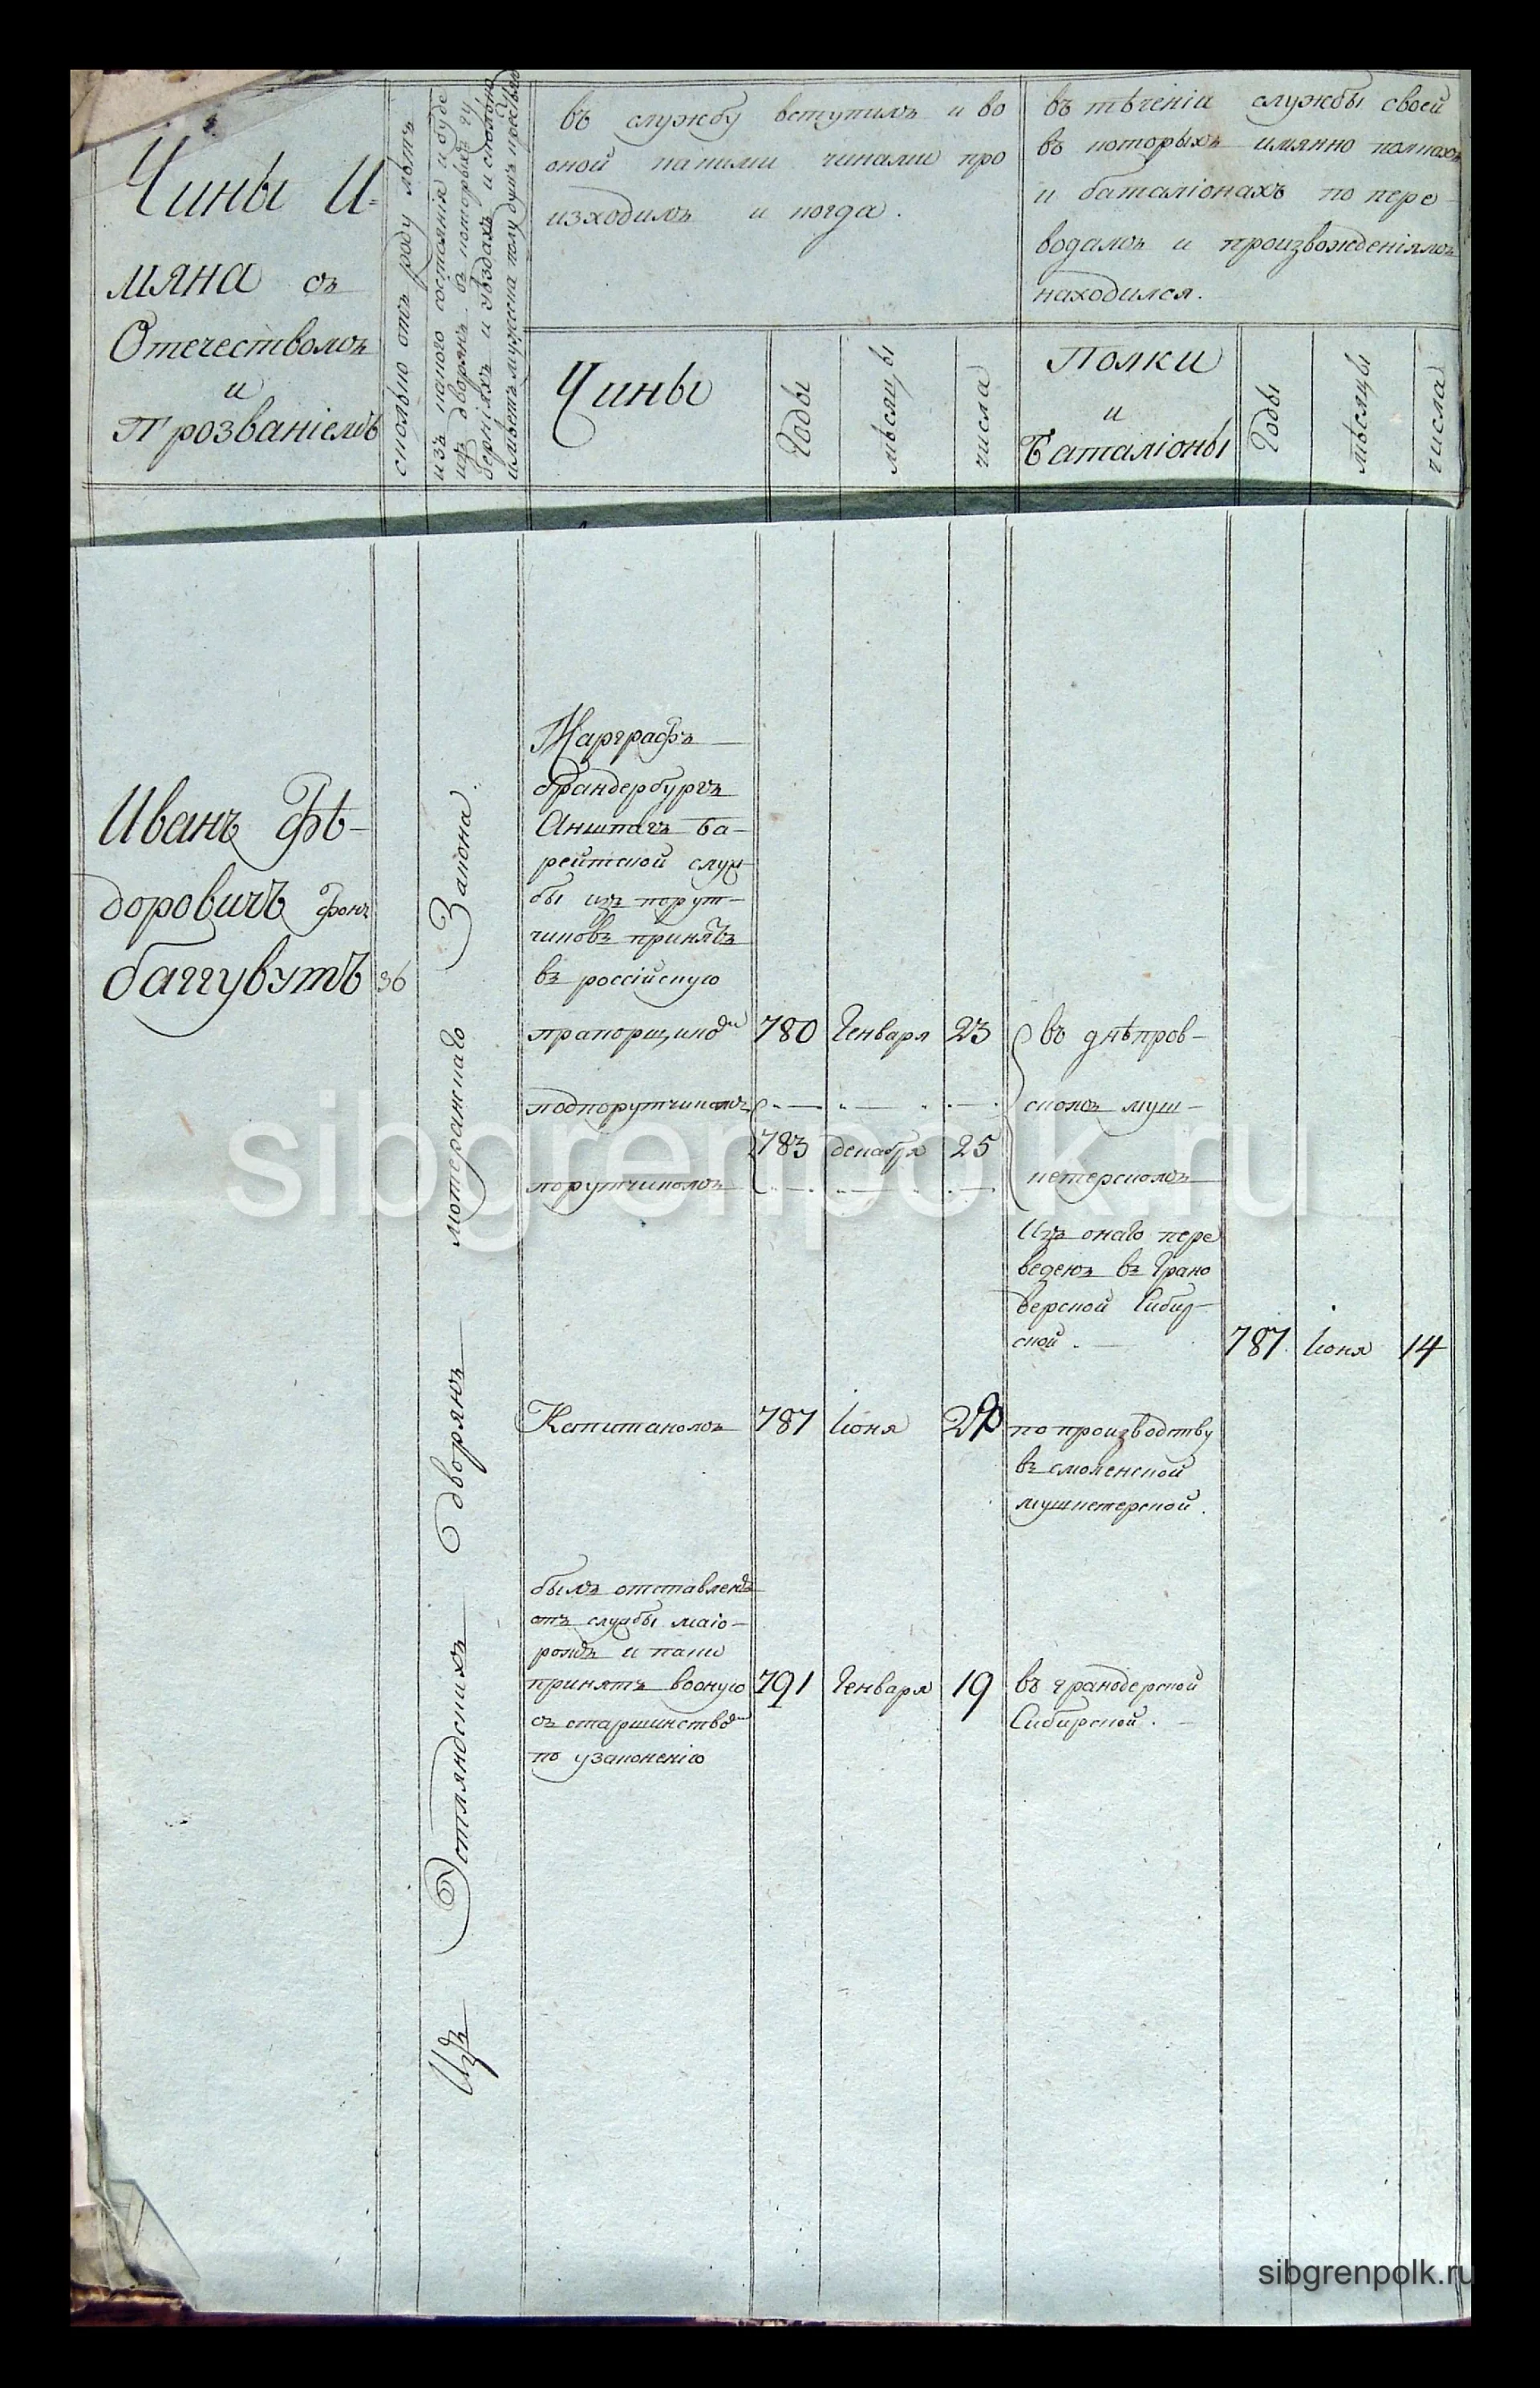 Чины И-
мяна съ
Отечествомъ
и
Прозваніемъ
сколько отъ роду летъ
изъ какого состоянія и буде
изъ дворянъ
имѣетъ мужеска полу душъ
въ службу вступилъ и во
оной какими чинами про
изходилъ и когда.
Чины
Годы
мѣсяцы
числа
въ тѣченіи службы своей
въ которыхъ имянно полкахъ
и баталіонахъ по пере
водамъ и произвожденіямъ
находился.
Полки
и
Баталіоны
Годы
мѣсяцы
числа
Иванъ Фѣ-
доровичъ фонъ
баггувутъ
36
Изъ Эстляндскихъ дворянъ лютеранскаго Закона.
Маргграфъ
брандербургъ
Аншпахъ ба-
рейтской служ
бы изъ порут-
чиковъ принятъ
въ россійскую
прапорщикомъ 780 Генваря 23
подпорутчикомъ
783 декабря 25
порутчикомъ
въ днѣпров-
скомъ муш-
кетерскомъ
Изъ онаго пере
веденъ въ Грано
дерской Сибир-
ской . 787 Іюня 14
Капитаномъ 787 Іюня
по производству
въ смоленской
мушкетерской.
былъ отставленъ
отъ службы маіо-
ромъ и паки
принятъ воную 791 Генваря 19
съ старшинствомъ
по узаконенію
въ гранодерской
Сибирской.
sibgrenpolk.ru
sibgrenpolk.ru